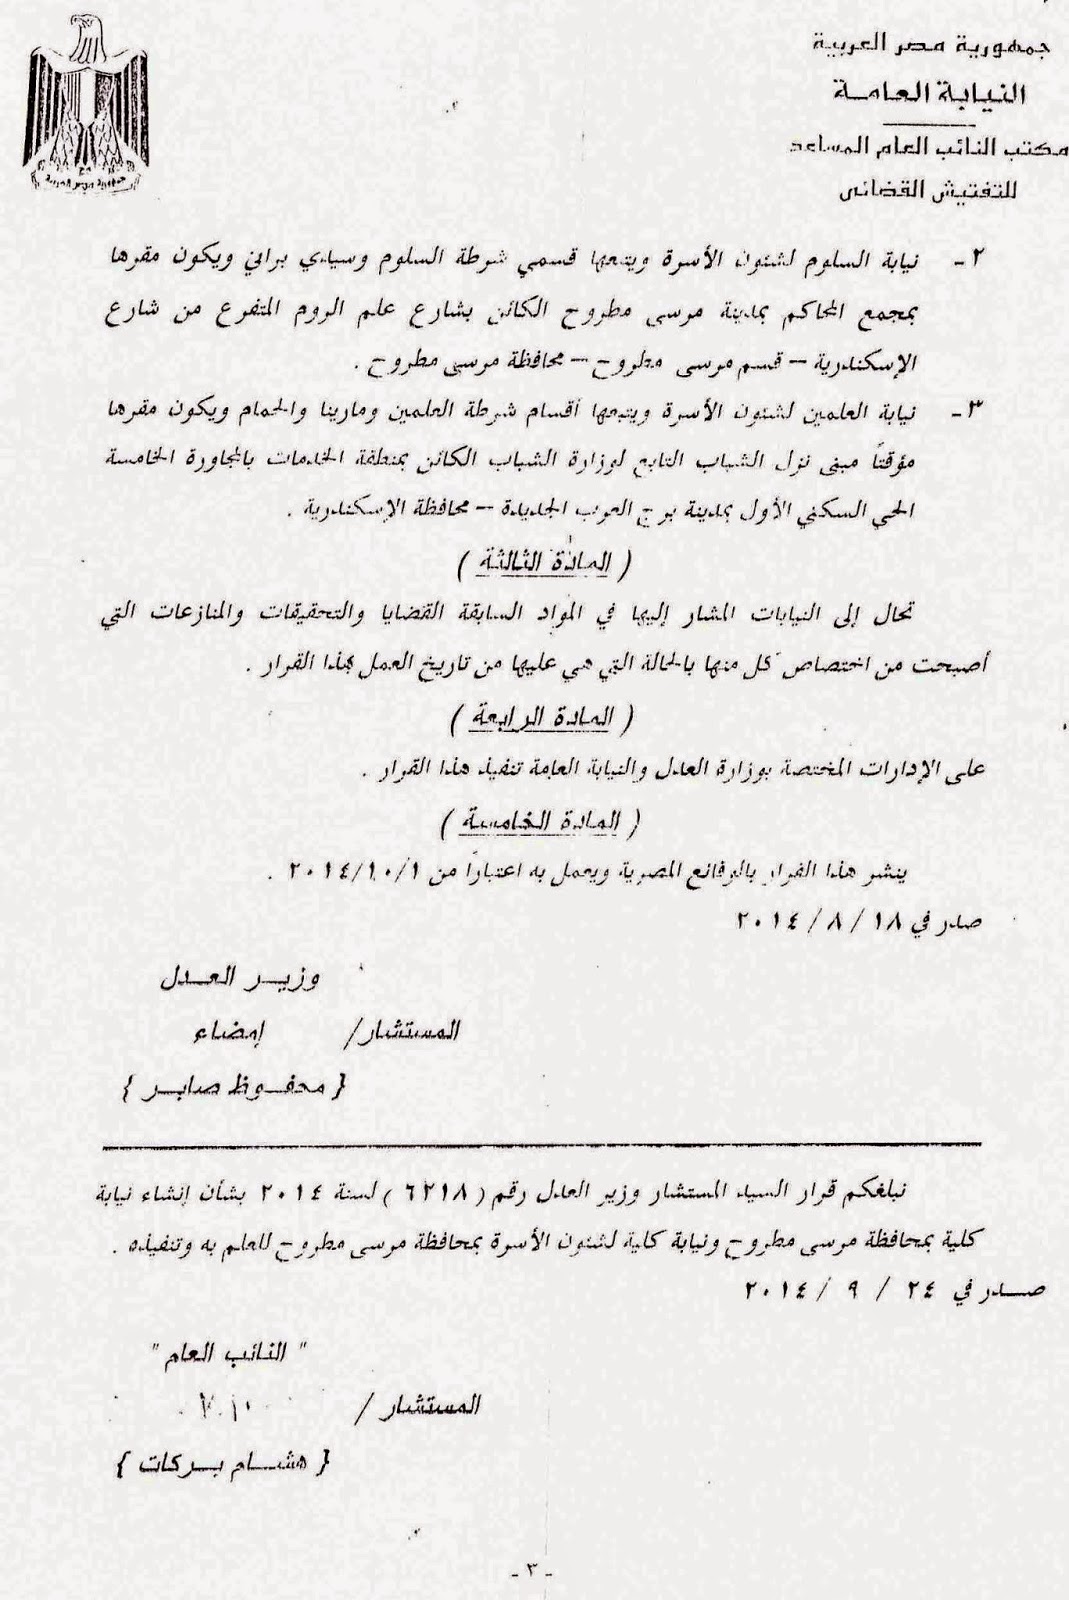 جمهورية مصر العربية
النيابة العامة
مكتب النائب العام المساعد
للتفتيش القضائى
جمهورية مصر العربية
٢ - نيابة السلوم لشئون الأسرة ويتبعها قسمي شرطة السلوم وسيدي براني ويكون مقرها
بمجمع المحاكم بمدينة مرسى مطروح الكائن بشارع علم الروم المتفرع من شارع
الإسكندرية – قسم مرسى مطروح – محافظة مرسى مطروح .
٣ - نيابة العلمين لشئون الأسرة ويتبعها أقسام شرطة العلمين ومارينا والحمام ويكون مقرها
مؤقتاً مبنى نزل الشباب التابع لوزارة الشباب الكائن بمنطقة الخدمات بالمجاورة الخامسة
الحي السكني الأول بمدينة برج العرب الجديدة – محافظة الإسكندرية .
( المادة الثالثة )
تحال إلى النيابات المشار إليها في المواد السابقة القضايا والتحقيقات والمنازعات التي
أصبحت من اختصاص كل منها بالحالة التي هي عليها من تاريخ العمل بهذا القرار .
( المادة الرابعة )
على الإدارات المختصة بوزارة العدل والنيابة العامة تنفيذ هذا القرار .
( المادة الخامسة )
ينشر هذا القرار بالوقائع المصرية ويعمل به اعتباراً من ٢٠١٤/١٠/١ .
صدر في ١٨ / ٨ / ٢٠١٤
وزيـر العـدل
المستشار/ إمضاء
{ محفـوظ صابـر }
نبلغكم قرار السيد المستشار وزير العدل رقم ( ٦٢١٨ ) لسنة ٢٠١٤ بشأن إنشاء نيابة
كلية بمحافظة مرسى مطروح ونيابة كلية لشئون الأسرة بمحافظة مرسى مطروح للعلم به وتنفيذه .
صــدر في ٢٤ / ٩ / ٢٠١٤
" النائب العام "
المستشار /
{ هشـام بـركات }
- ٣ -